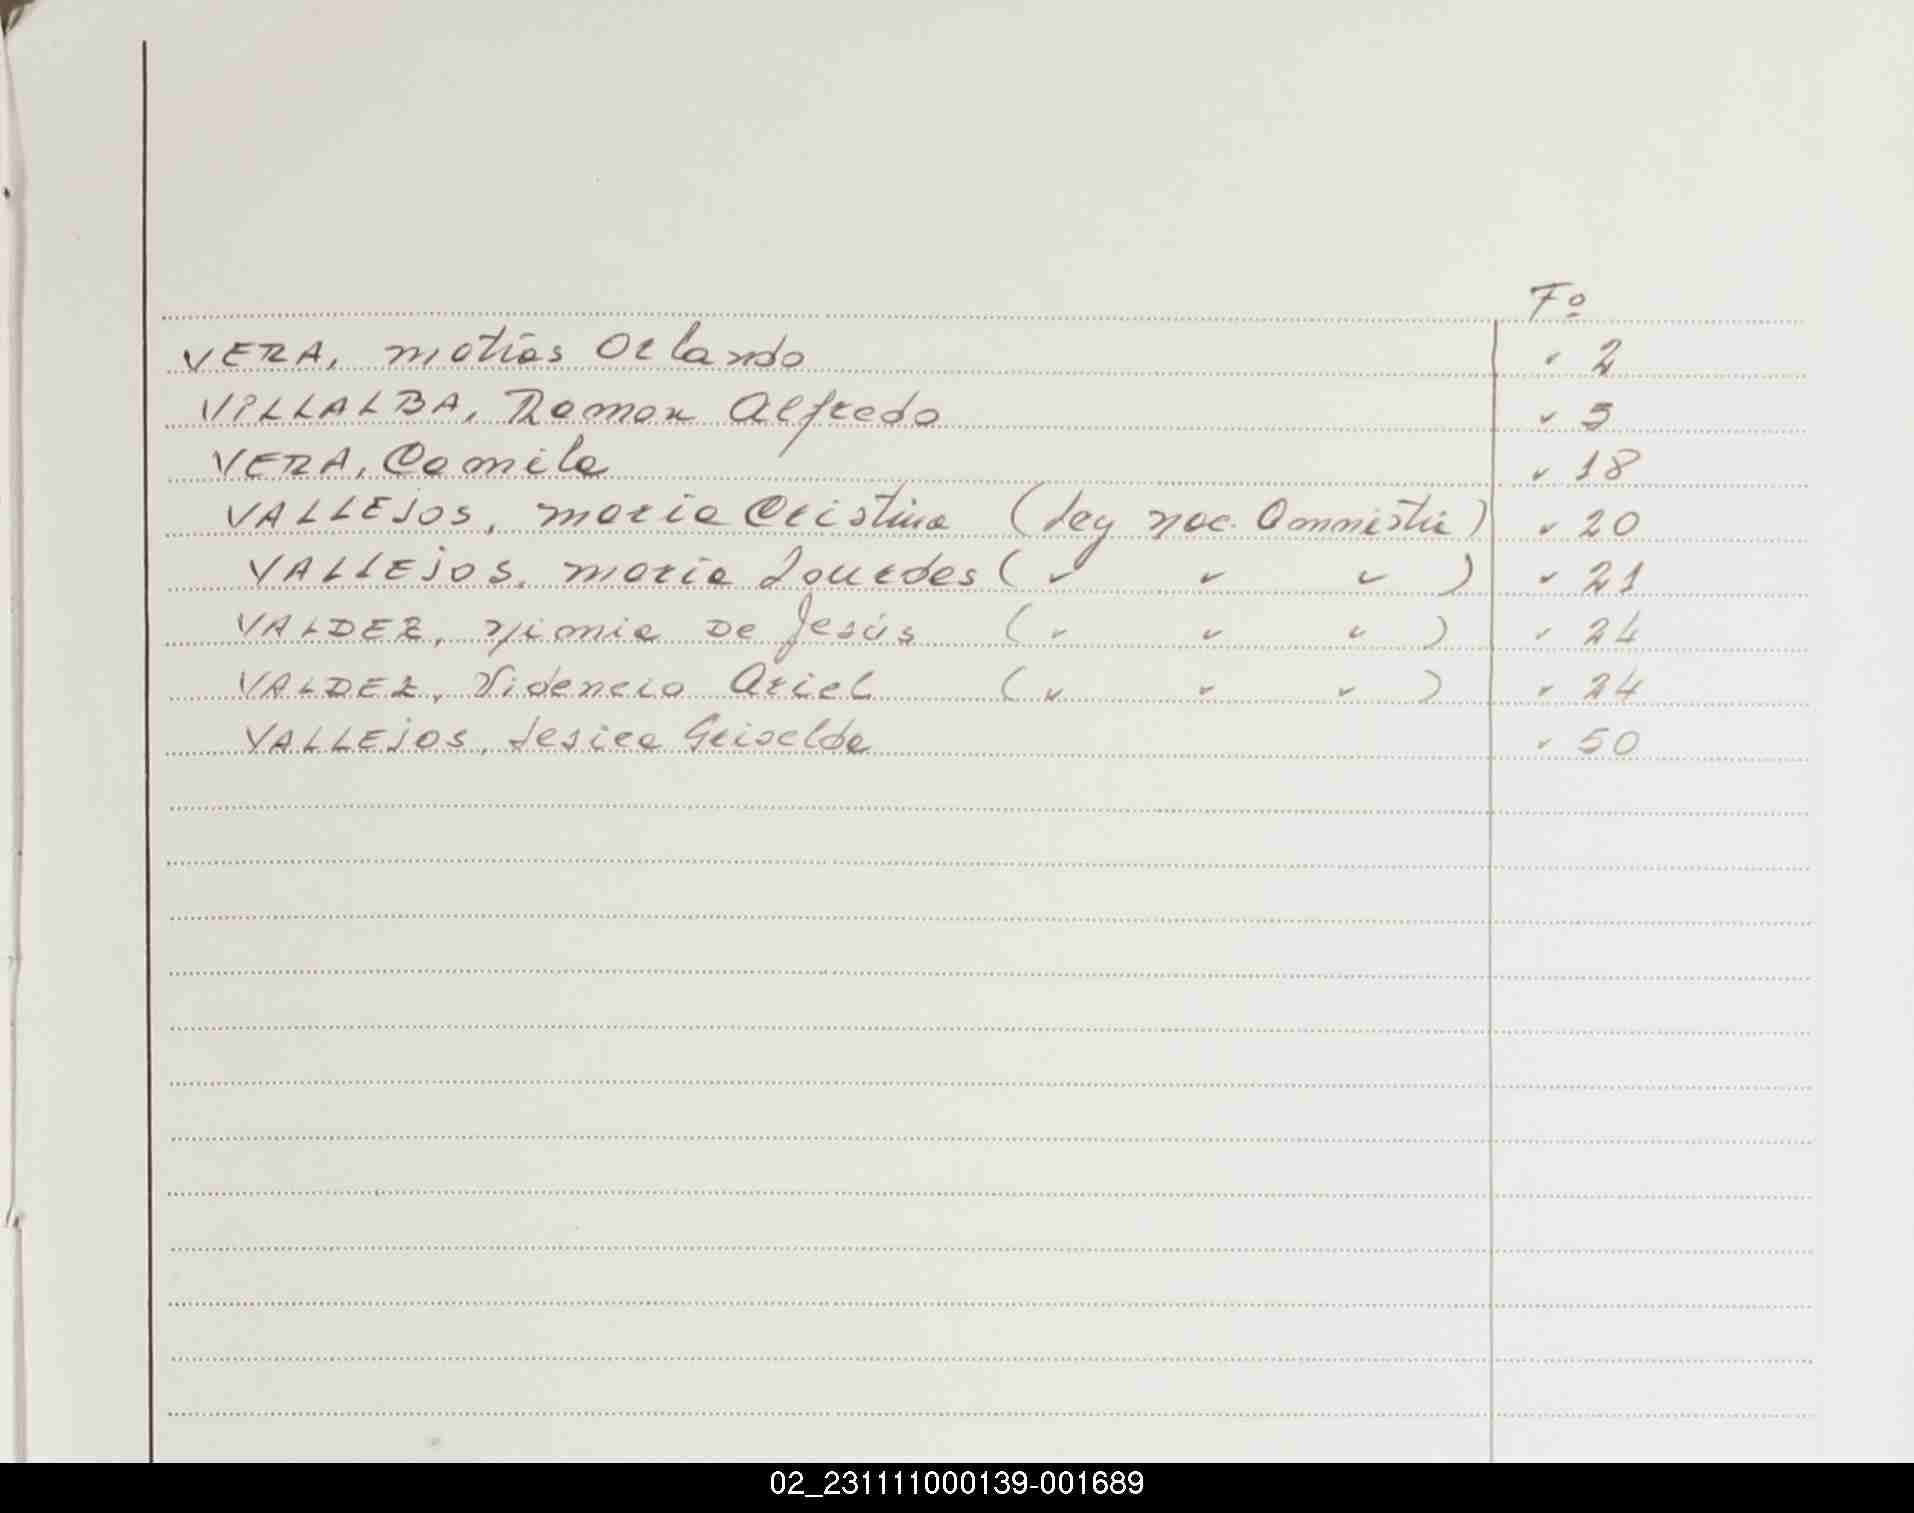 Fº
VERA, Matías Orlando ✓ 2
VILLALBA, Ramon Alfredo ✓ 5
VERA, Camila ✓ 18
VALLEJOS, María Cristina (Ley nac. Amnistía) ✓ 20
VALLEJOS, María Lourdes ( ✓ ✓ ✓ ) ✓ 21
VALDEZ, Nimia De Jesús ( ✓ ✓ ✓ ) ✓ 24
VALDEZ, Ariel ( ✓ ✓ ✓ ) ✓ 24
VALLEJOS, Jesica Griselda ✓ 50
02_231111000139-001689